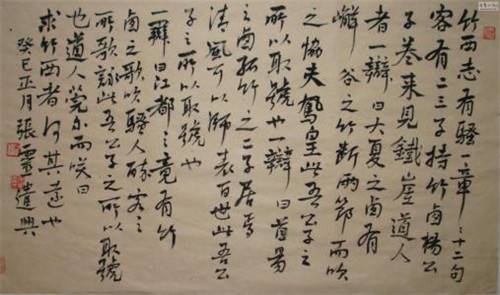 竹西志有騷一章〻十二句
客有二三子持竹卤楊公
子卷來見鐵崖道人
者一辯曰大夏之卤有
嶰谷之竹斷兩節而吹
之協夫鳳皇此吾公子之
所以取號也一辯曰首陽
之卤孤竹之二子居焉
清風可以師表百世此吾公
子之所以取號也
一辯曰江都之竟有竹
卤之歌吹騷人醉客之
所歌詠此吾公子之所以取號
也道人莞尔而咲曰
求竹西者何其遠也
癸巳正月張靈遣興